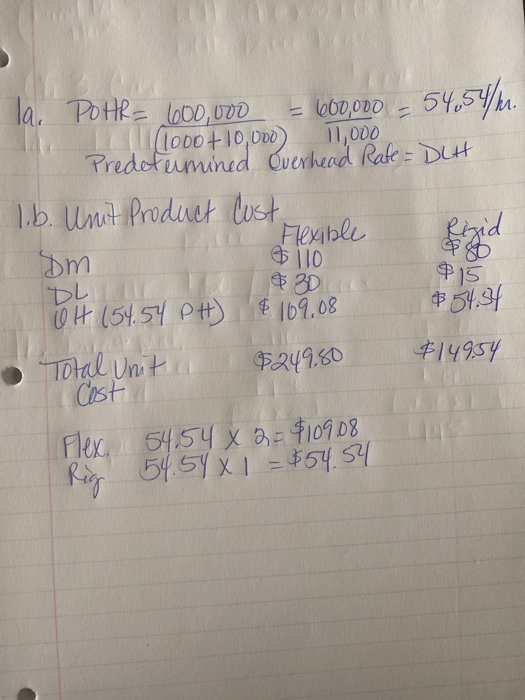 1a. POHR = 600,000 = 600,000 = 54.54/hr.
(1000+10,000) 11,000
Predetermined Overhead Rate = DLH
1.b. Unit Product Cost
Flexible Rigid
DM $110 $80
DL $30 $15
OH (54.54 PH) $109.08 $54.54
Total Unit $249.80 $149.54
Cost
Flex. 54.54 x 2 = $109.08
Rig 54.54 x 1 = $54.54